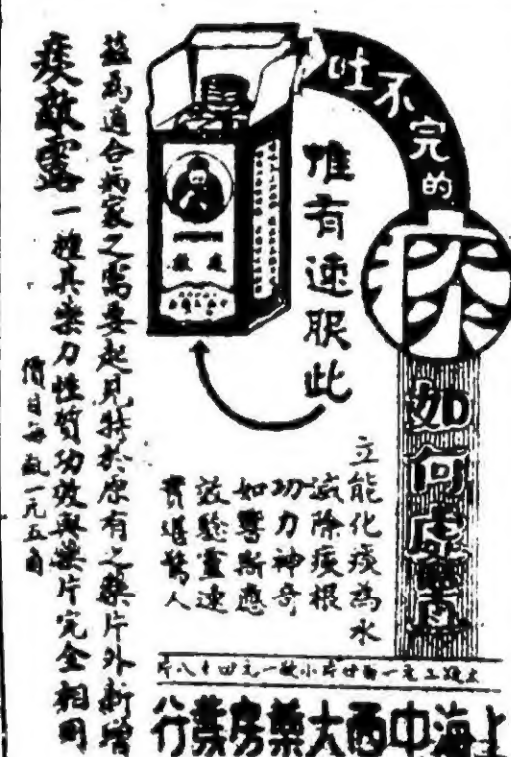 吐不完的
痰
如何處置
惟有速服此
立能化痰為水
滅除痰根
功力神奇
如響斯應
效驗靈速
實堪驚人
上海中西大藥房發行
茲為適合病家之需要起見特於原有之藥片外新增
痰敵露一種其藥力性質功效與藥片完全相同
價目每瓶一元五角